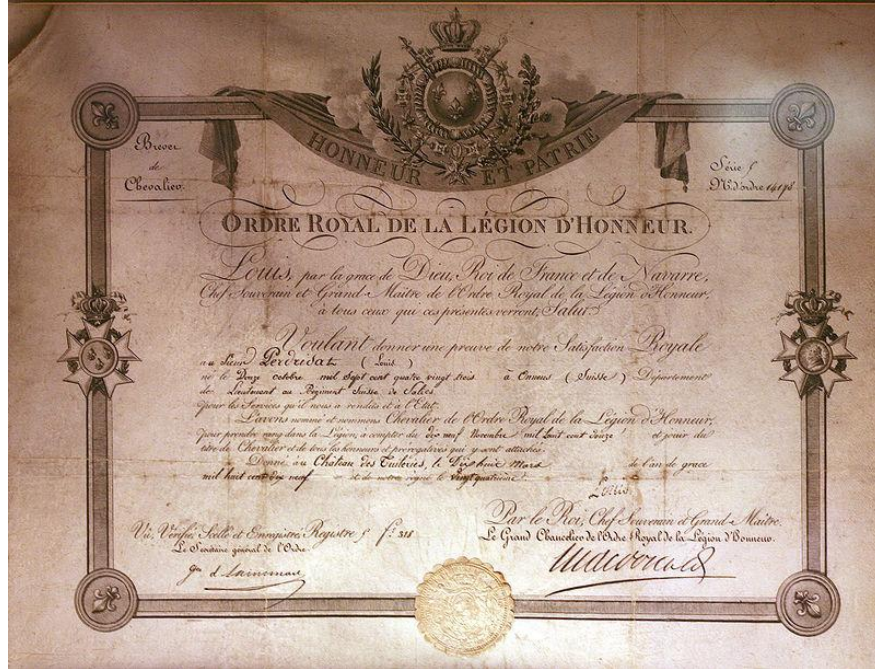 HONNEUR ET PATRIE
Brevet
de
Chevalier.
Série 5
N.º d'ordre 14178
ORDRE ROYAL DE LA LÉGION D'HONNEUR.
Louis, par la grace de Dieu, Roi de France et de Navarre,
Chef Souverain et Grand-Maître de l'Ordre Royal de la Légion d'Honneur,
à tous ceux qui ces présentes verront, Salut.
Voulant donner une preuve de notre Satisfaction Royale
au Sieur Perdrisat (Louis)
né le Douze octobre mil sept cent quatre vingt trois à Onnens (Suisse) Département
de Lieutenant au Régiment Suisse de Salis
pour les Services qu'il nous a rendus et à l'Etat.
L'avons nommé et nommons Chevalier de l'Ordre Royal de la Légion d'Honneur,
pour prendre rang dans la Légion, à compter du dix neuf Novembre mil huit cent douze et jouir du
titre de Chevalier et de tous les honneurs et prérogatives qui y sont attachés.
Donné au Château des Tuileries, le Dix huit Mars de l'an de grace
mil huit cent dix neuf et de notre règne le Vingt quatrième
Louis
Par le Roi, Chef Souverain et Grand-Maître.
Vu, Vérifié, Scellé et Enregistré, Registre 5 f.º 318
Le Grand Chancelier de l'Ordre Royal de la Légion d'Honneur.
Le Secrétaire général de l'Ordre.